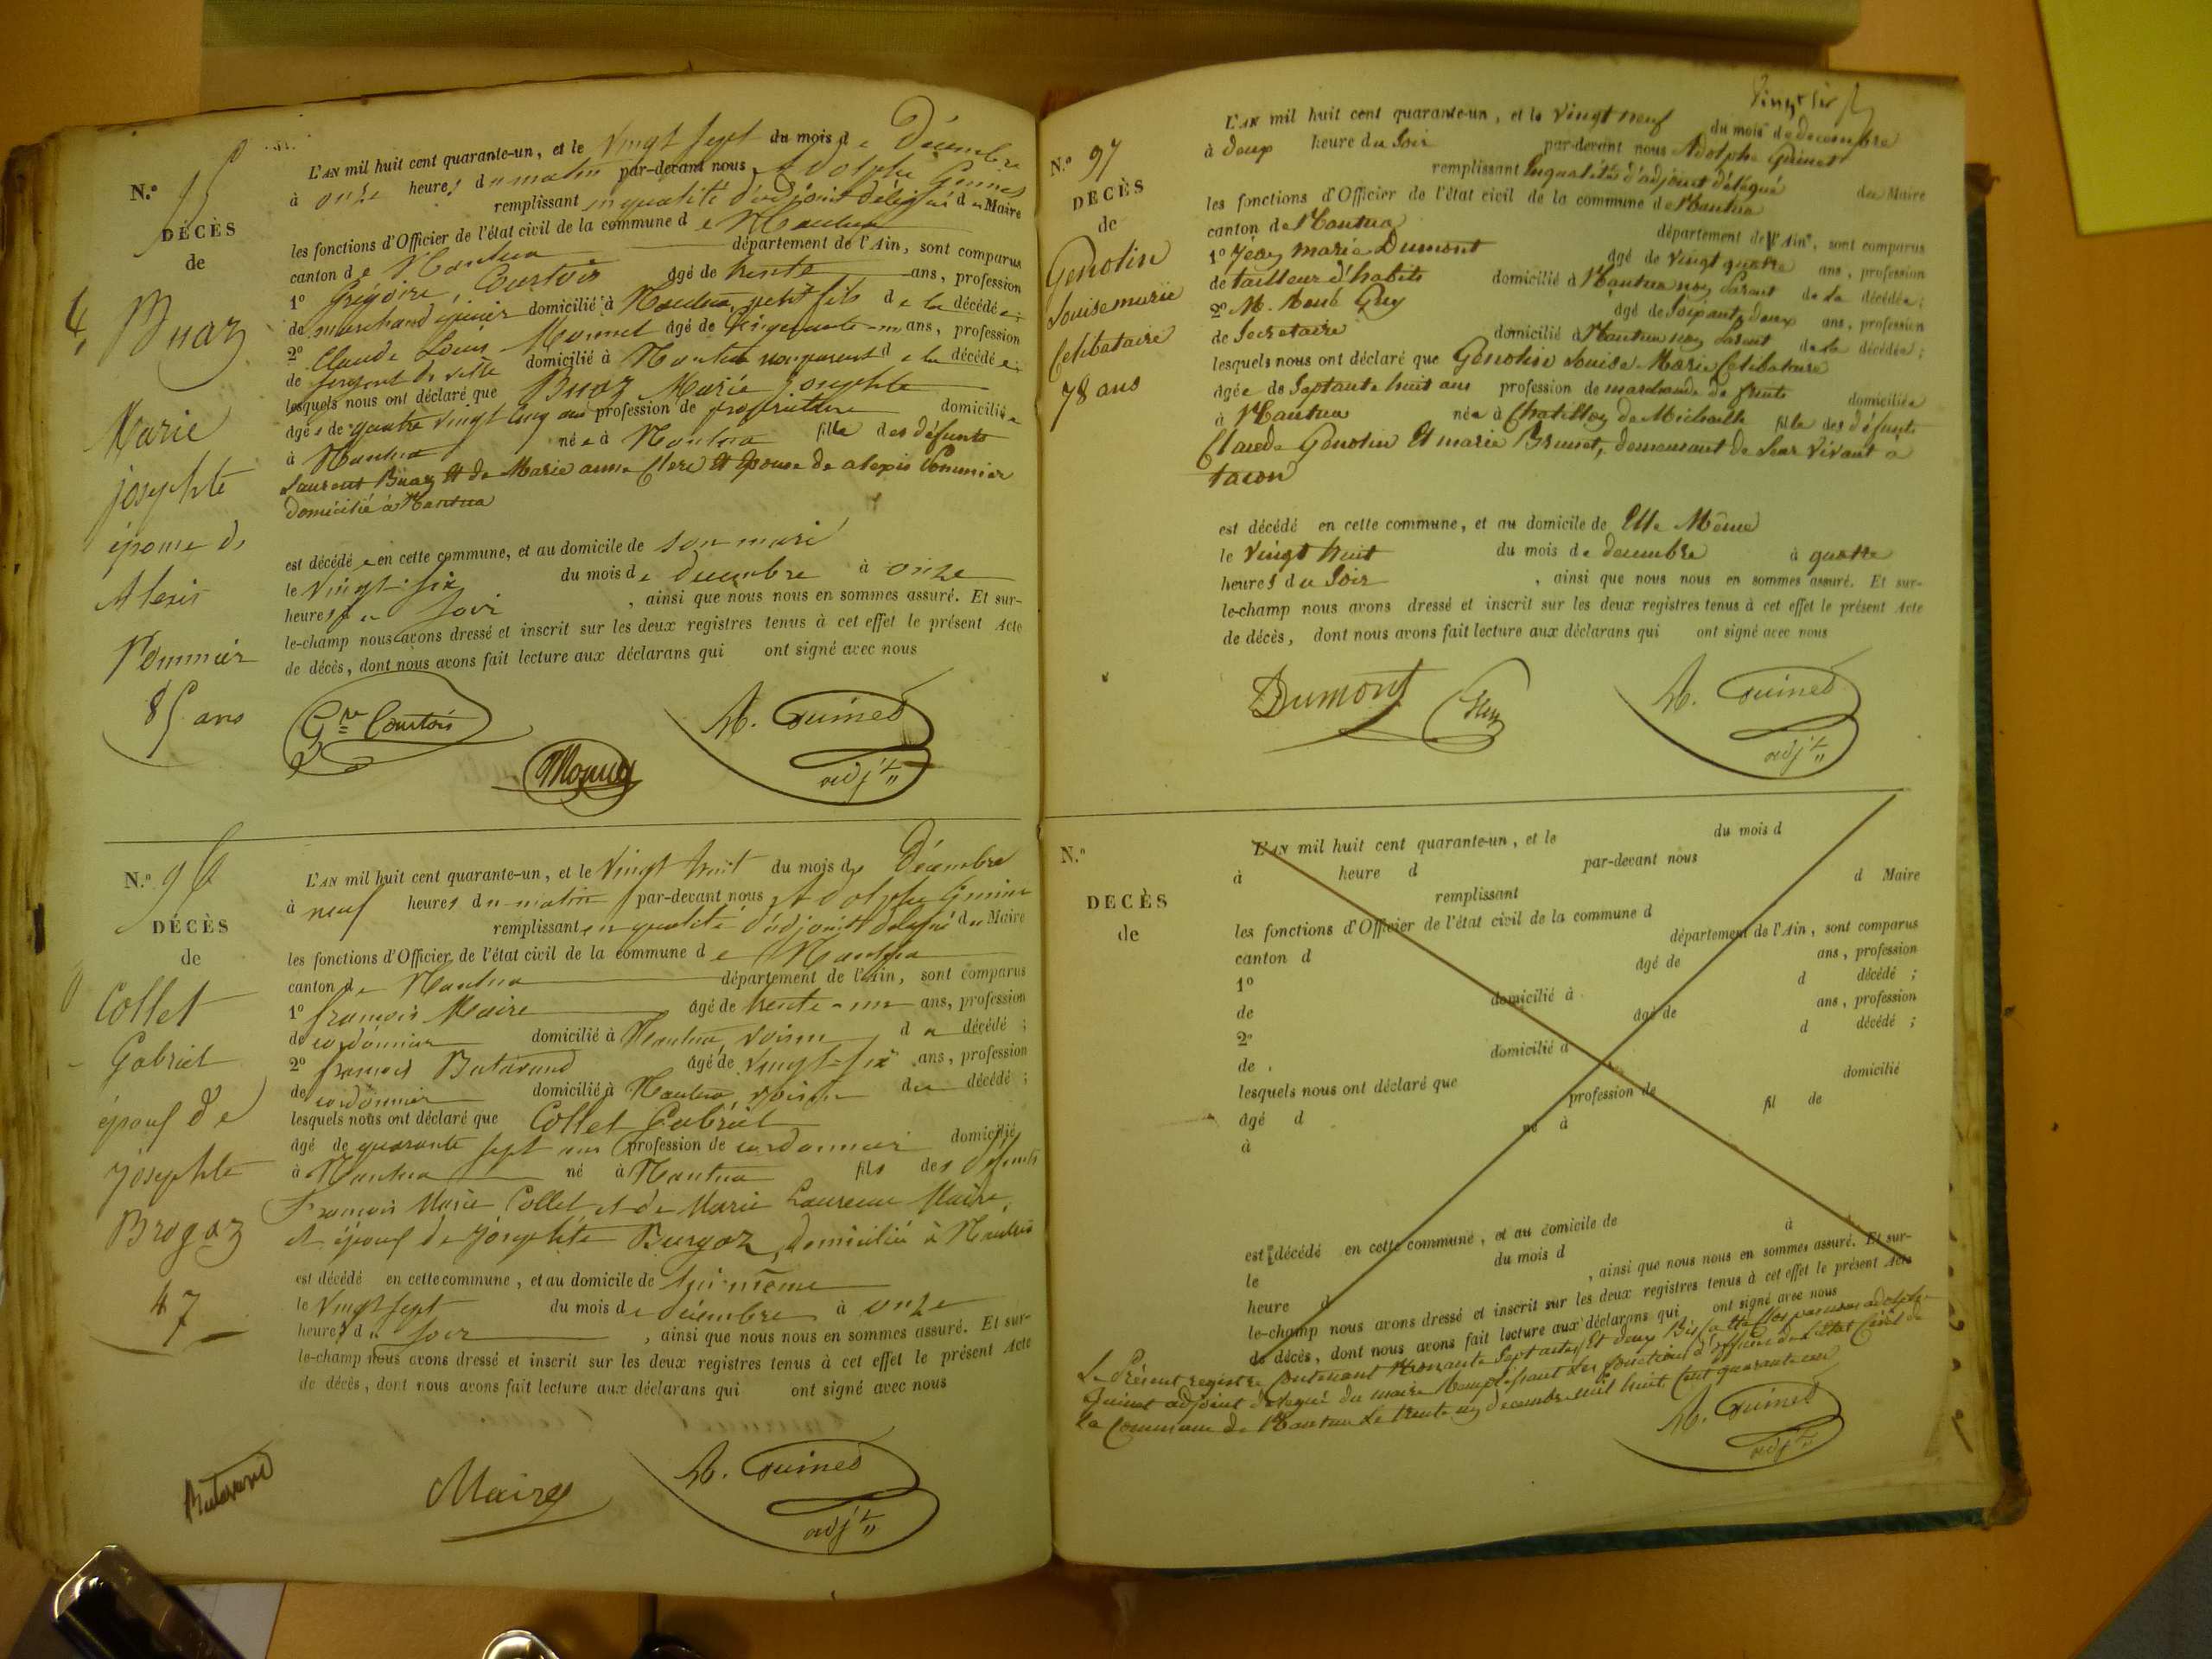 N.º 95
DÉCÈS
de
Buaz
Marie
josephte
épouse de
Alexis
Pommier
85 ans
L'AN mil huit cent quarante-un, et le Vingt sept du mois de Décembre
à onze heures du matin par-devant nous Adolphe Guinet
remplissant en qualité d'adjoint délégué du Maire
les fonctions d'Officier de l'état civil de la commune de Nantua
canton de Nantua département de l'Ain, sont comparus
1º Grégoire Courtois âgé de trente ans, profession
de marchand épicier domicilié à Nantua, petit fils de la décédée;
2º Claude Louis Monnet âgé de cinquante-un ans, profession
de sergent de ville domicilié à Nantua non parent de la décédée;
lesquels nous ont déclaré que Buaz Marie josephte
âgée de quatre vingt cinq ans profession de propriétaire domiciliée
à Nantua née à Nantua fille des défunts
Laurent Buaz et de Marie anne Clerc et épouse de alexis Pommier
domicilié à Nantua
est décédée en cette commune, et au domicile de son mari
le Vingt-six du mois de decembre à onze
heures du Soir, ainsi que nous nous en sommes assuré. Et sur-
le-champ nous avons dressé et inscrit sur les deux registres tenus à cet effet le présent Acte
de décès, dont nous avons fait lecture aux déclarans qui ont signé avec nous
Gre Courtois
Monnet
Ad. Guinet
adjt
N.º 96
DÉCÈS
de
Collet
Gabriel
époux de
josephte
Brogaz
47
L'AN mil huit cent quarante-un, et le Vingt huit du mois de Décembre
à neuf heures du matin par-devant nous Adolphe Guinet
remplissant en qualité d'adjoint délégué du Maire
les fonctions d'Officier de l'état civil de la commune de Nantua
canton de Nantua département de l'Ain, sont comparus
1º françois Maire âgé de trente-un ans, profession
de cordonnier domicilié à Nantua, voisin du décédé;
2º françois Butavand âgé de vingt-six ans, profession
de cordonnier domicilié à Nantua voisin du décédé;
lesquels nous ont déclaré que Collet Gabriel
âgé de quarante sept ans profession de cordonnier domicilié
à Nantua né à Nantua fils des défunts
François Marie Collet et de Marie Laurence Maire,
et époux de josephte Burgoz, domiciliée à Nantua
est décédé en cette commune, et au domicile de lui-même
le Vingt sept du mois de décembre à onze
heures du Soir, ainsi que nous nous en sommes assuré. Et sur-
le-champ nous avons dressé et inscrit sur les deux registres tenus à cet effet le présent Acte
de décès, dont nous avons fait lecture aux déclarans qui ont signé avec nous
Butavand
Maire
Ad. Guinet
adjt
Vingt six
N.º 97
DÉCÈS
de
Genolin
Louise marie
Celibataire
78 ans
L'AN mil huit cent quarante-un, et le vingt neuf du mois de decembre
à deux heure du Soir par-devant nous Adolphe Guinet
remplissant Enqualité d'adjoint délégué du Maire
les fonctions d'Officier de l'état civil de la commune de Nantua
canton de Nantua département de l'Ain, sont comparus
1º jean marie Dumont âgé de vingt quatre ans, profession
de tailleur d'habits domicilié à Nantua non parent de la décédée;
2º M. René Guy âgé de soixante deux ans, profession
de Secretaire domicilié à Nantua non parent de la décédée;
lesquels nous ont déclaré que Genolin Louise Marie Celibataire
âgée de Septante huit ans profession de marchande de fruits domiciliée
à Nantua née à Chatillon de Michaille fille des défunts
Claude Genolin Et marie Brunet, demeurant de leur vivant à
tacon
est décédé en cette commune, et au domicile de Elle Même
le vingt huit du mois de decembre à quatre
heures du Soir, ainsi que nous nous en sommes assuré. Et sur-
le-champ nous avons dressé et inscrit sur les deux registres tenus à cet effet le présent Acte
de décès, dont nous avons fait lecture aux déclarans qui ont signé avec nous
Dumont
Guy
Ad. Guinet
adjt
N.º
DÉCÈS
de
L'AN mil huit cent quarante-un, et le du mois d
à heure d par-devant nous
remplissant d Maire
les fonctions d'Officier de l'état civil de la commune d
canton d département de l'Ain, sont comparus
1º âgé de ans, profession
de domicilié à d décédé;
2º âgé de ans, profession
de domicilié à d décédé;
lesquels nous ont déclaré que
âgé d profession de domicilié
à né à fil de
est décédé en cette commune, et au domicile de
le du mois d à
heure d, ainsi que nous nous en sommes assuré. Et sur-
le-champ nous avons dressé et inscrit sur les deux registres tenus à cet effet le présent Acte
de décès, dont nous avons fait lecture aux déclarans qui ont signé avec nous
Le Présent registre contenant Nonante Sept actes Et deux Bis a été clos par nous adolphe
Guinet adjoint délégué du maire Remplissant les fonctions d'officier de l'état Civil de
la Commune de Nantua le trente un decembre mil huit Cent quarante un
Ad. Guinet
adjt